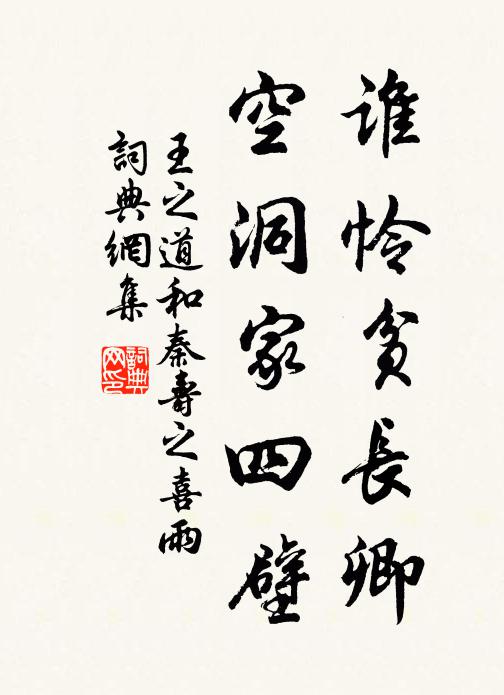 誰怜貧長卿
空洞家四壁
王之道和秦壽之喜雨
詞典網集
詞典网印